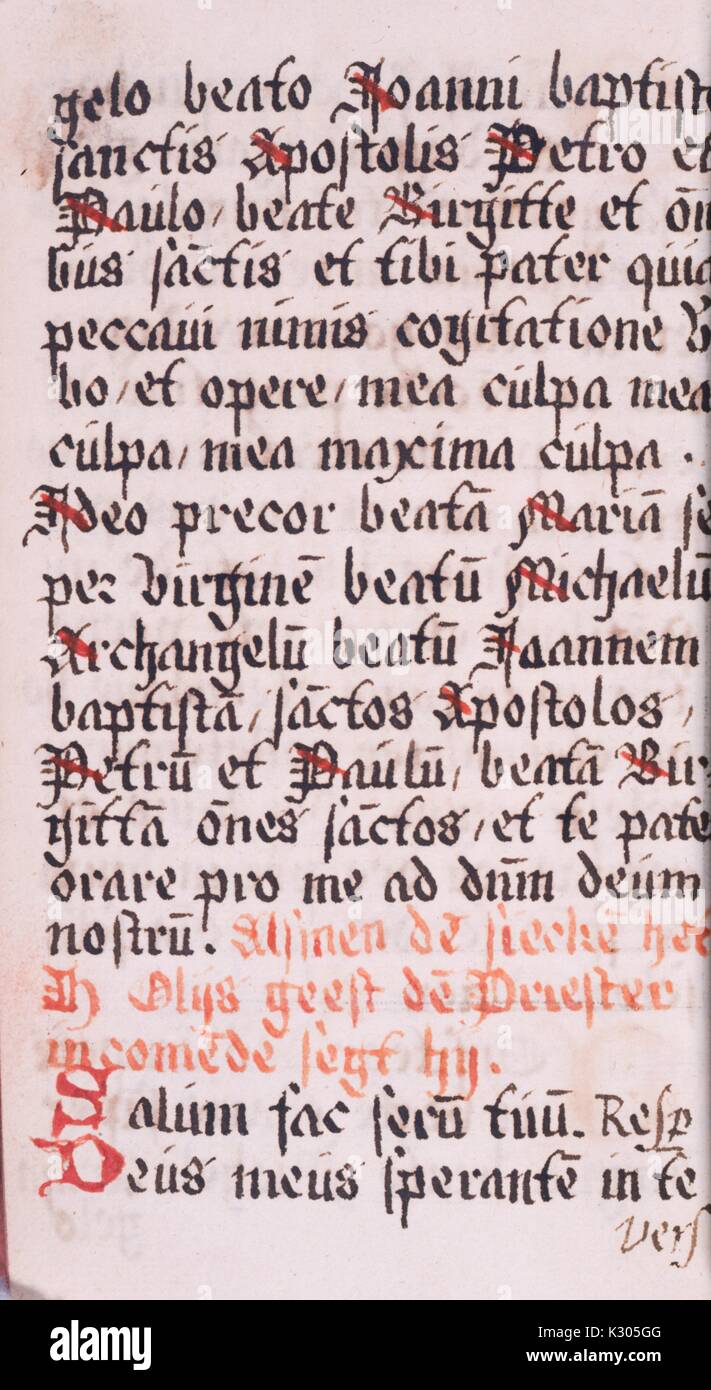 gelo beato Joanni baptist
sanctis Apostolis Petro et
Paulo, beate Birgitte et on̄i
bus sāctis et tibi pater quia
peccaui nimis cogitatione
bo, et opere, mea culpa mea
culpa, mea maxima culpa.
Ideo precor beatā Mariā se
per virginē beatū Michaelū
Archangelū beatū Joannem
baptistā, sāctos Apostolos,
Petrū et Paulū, beatā Bir-
gittā ōnes sāctos, et te pate
orare pro me ad dn̄m deum
nostrū. Alsmen dē sieckē hee
H Olijs geest dē Priester
incomēde segt hy.
Saluum fac seruū tuū. Resp
Deus meus sperantē in te
Vers
alamy
alamy
Image ID: K305GG
www.alamy.com